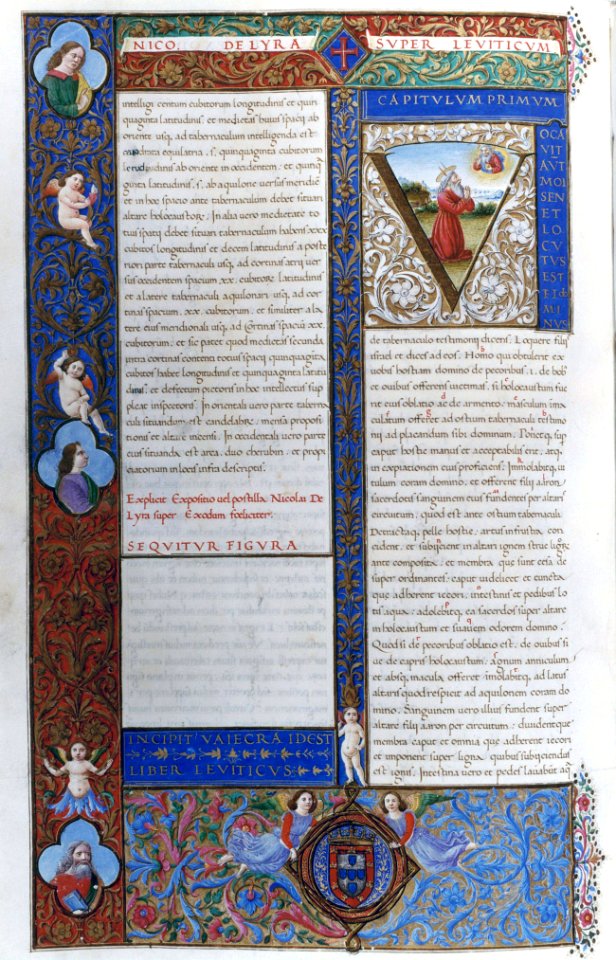 NICO. DE LYRA SUPER LEVITICUM
intelligi centum cubitorum longitudinis et quin
quaginta latitudinis, et medietas huius spacij ab
oriente usq, ad tabernaculum intelligenda est
quadrata equilatia .s. quinquaginta cubitorum
ab oriente in occidentem . et quinq
ginta latitudinis .s. ab aquilone versus meridie
et in hoc spacio ante tabernaculum debet situari
altare holocaustor, In alia vero medietate to
tius spatij debet situari tabernaculum habens xxx
cubitos longitudinis et decem latitudinis a poste
riori parte tabernaculi usq, ad cortinas atrij ver
sus occidentem spacium .xx. cubitor, latitudinis
et a latere tabernaculi aquilonari usq, ad cor
tinas spacium .xx. cubitorum . et similiter a la
tere eius meridionali usq, ad cortinas spaciū xx.
cubitorum : et sic patet quod medietas secunda
intra cortinas contenta totius spacij quinquagita
cubitos habet longitudinis et quinquaginta latita
dinis . et defectum pictoris in hoc intellectus sup
pleat inspectoris . In orientali vero parte taberna
culi situandum est candelabre, mensa propositi
onis et altare incensi . In occidentali vero parte
eius situanda est arca, duo cherubin, et propi
ciatorium in locis infra descriptis.
Explicit Expositio vel postilla Nicolai De
Lyra super Exodum foeliciter.
SEQVITVR FIGVRA
INCIPIT VAIECRA IDEST
LIBER LEVITICVS
CAPITVLVM PRIMVM
VOCA
VIT
AVT
MOI
SEN
ET LO
CV
TVS
EST
EI do
MI
NVS
de tabernaculo testimonij dicens, Loquere filijs
israel et dices ad eos. Homo qui obtulerit ex
vobis hostiam domino de pecoribus .i. de bob
et ovibus offerens victimas, si holocaustum fue
rit eius oblatio ac de armento, masculum ima
culatum offeret ad ostium tabernaculi testimo
nij ad placandum sibi dominum. Ponetq, sup
caput hostie manus et acceptabilis erit, atq,
in expiationem eius proficiens, Immolabitq, vi
tulum coram domino, et offerent filij aaron
sacerdotes sanguinem eius fundentes per altaris
circuitum, quod est ante ostium tabernaculi
Detractaq, pelle hostie, artus in frusta con
cident, et subijcient in altari ignem strue lignor,
ante composita, et membra que sunt cesa de
super ordinantes, caput videlicet et cuncta
que adherent iecori, intestinis et pedibus lo
tis aqua, adolebitq, ea sacerdos super altare
in holocaustum et suavem odorem domino.
Quod si de pecoribus oblatio est, de ovibus si
ve de capris holocaustum, agnum anniculum
et absq, macula offeret, imolabitq, ad latus
altaris quod respicit ad aquilonem coram do
mino. Sanguinem vero illius fundent super
altare filij aaron per circuitum, dividentque
membra caput et omnia que adherent iecori
et imponent super ligna quibus subijciendus
est ignis, Intestina vero et pedes lavabunt aq